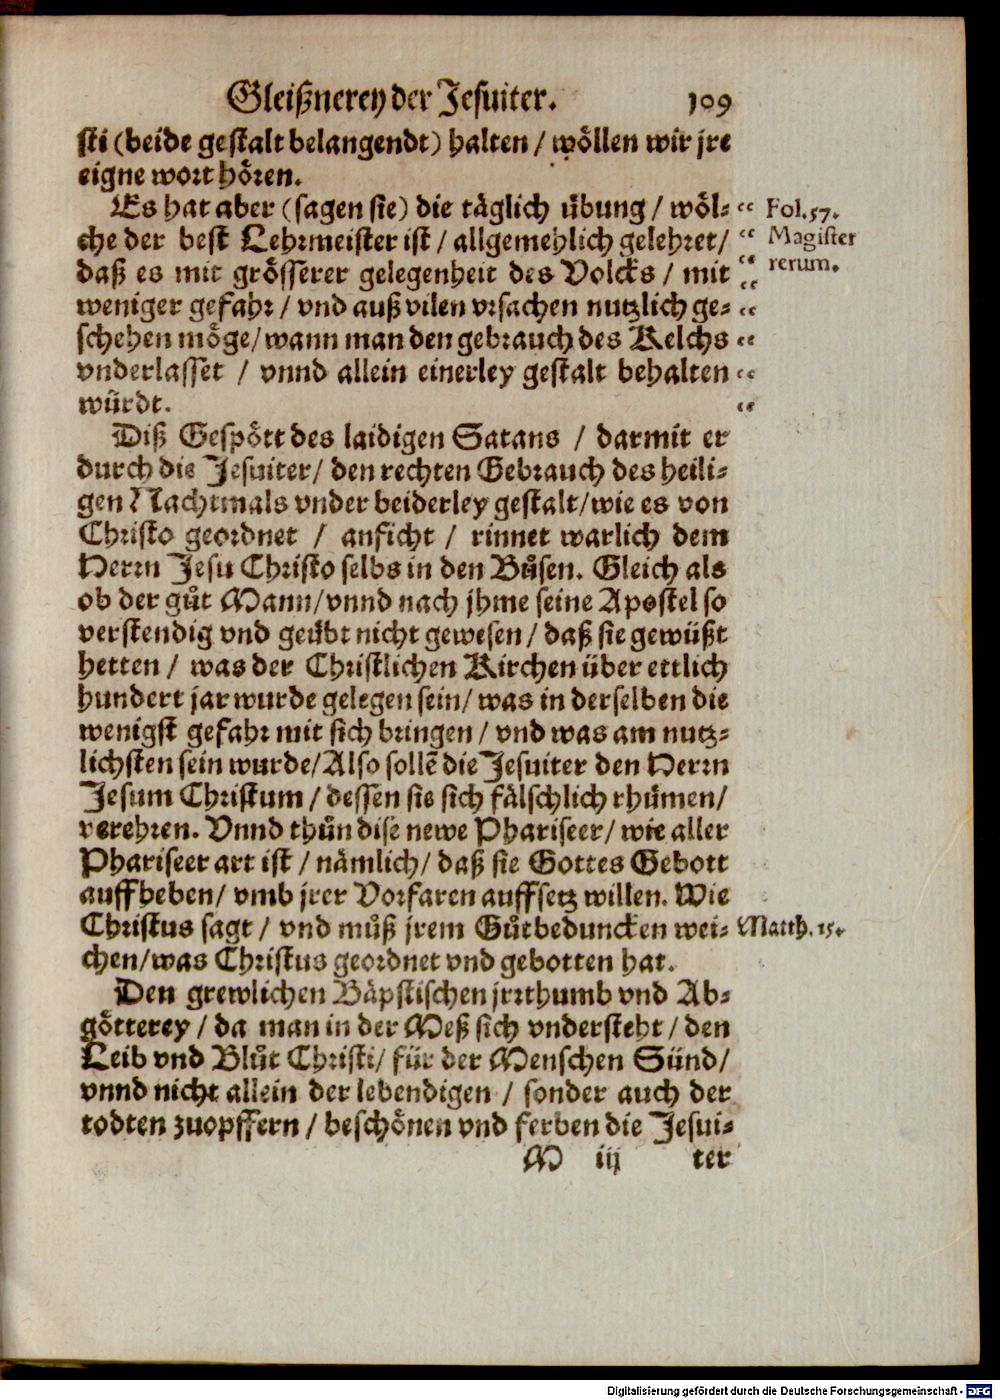 Gleißnerey der Jesuiter. 109
sti (beide gestalt belangendt) halten / wöllen wir jre
eigne wort hören.
Es hat aber (sagen sie) die täglich übung / wöl- “ Fol. 57.
che der best Lehrmeister ist / allgemehlich gelehret / “ Magister
daß es mit grösserer gelegenheit des Volcks / mit “ rerum.
weniger gefahr / vnd auß vilen vrsachen nutzlich ge- “
schehen möge / wann man den gebrauch des Kelchs “
vnderlasset / vnnd allein einerley gestalt behalten “
würdt. “
Diß Gespött des laidigen Satans / darmit er
durch die Jesuiter / den rechten Gebrauch des heili-
gen Nachtmals vnder beiderley gestalt / wie es von
Christo geordnet / anficht / rinnet warlich dem
Herrn Jesu Christo selbs in den Bůsen. Gleich als
ob der gůt Mann / vnnd nach jhme seine Apostel so
verstendig vnd geübt nicht gewesen / daß sie gewüßt
hetten / was der Christlichen Kirchen über ettlich
hundert jar wurde gelegen sein / was in derselben die
wenigst gefahr mit sich bringen / vnd was am nutz-
lichsten sein wurde / Also sollẽ die Jesuiter den Herrn
Jesum Christum / dessen sie sich fälschlich rhümen /
verehren. Vnnd thůn dise newe Phariseer / wie aller
Phariseer art ist / nämlich / daß sie Gottes Gebott
auffheben / vmb jrer Vorfaren auffsetz willen. Wie
Christus sagt / vnd můß jrem Gůtbeduncken wei- Matth. 15.
chen / was Christus geordnet vnd gebotten hat.
Den grewlichen Bäpstischen jrrthumb vnd Ab-
götterey / da man in der Meß sich vndersteht / den
Leib vnd Blůt Christi / für der Menschen Sünd /
vnnd nicht allein der lebendigen / sonder auch der
todten zuopffern / beschönen vnd ferben die Jesui-
M iij ter
Digitalisierung gefördert durch die Deutsche Forschungsgemeinschaft - DFG